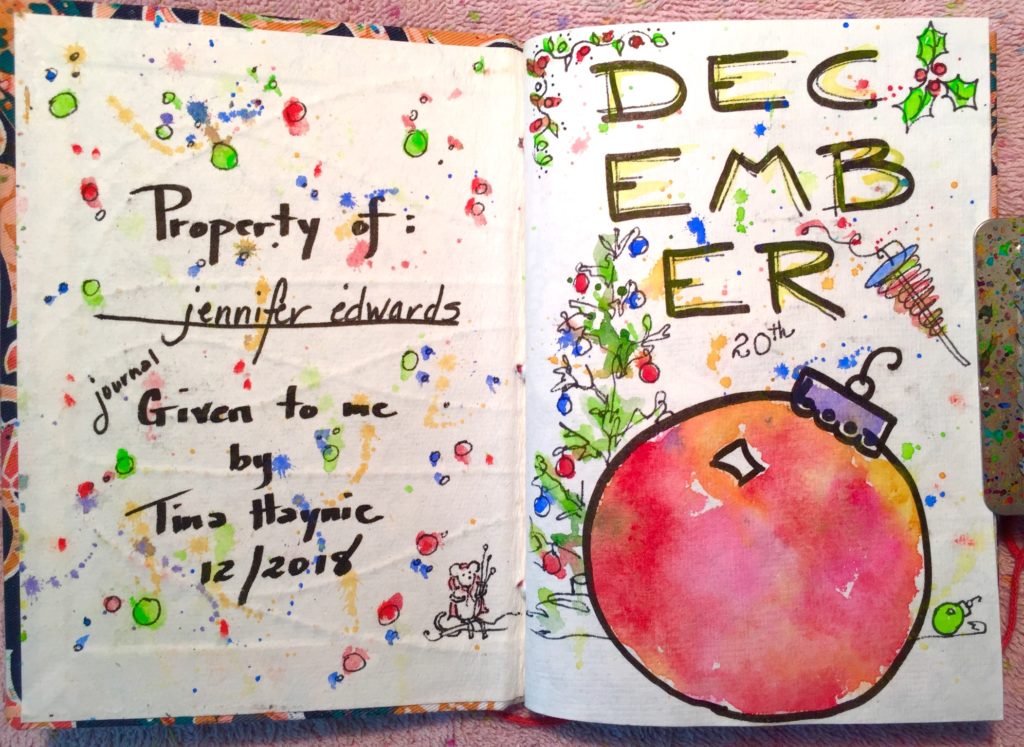 Property of:
jennifer edwards
journal
Given to me
by
Tina Haynie
12/2018
DEC
EMB
ER
20th